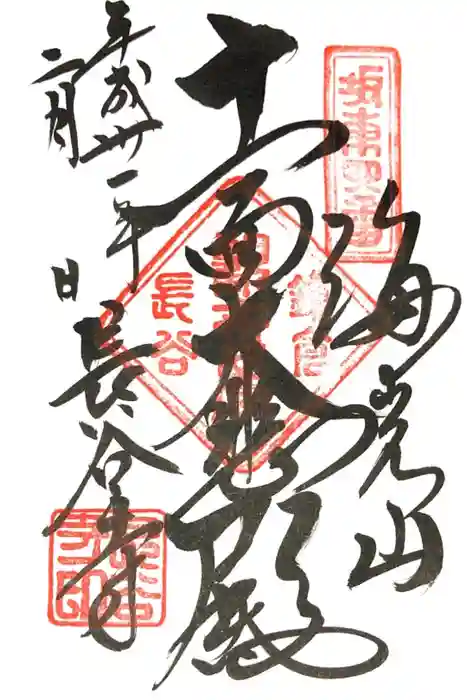 坂東四番
海光山
十一面大悲殿
鎌倉
観世音
長谷
平成卅一年
二月
日
長谷寺
長谷寺印